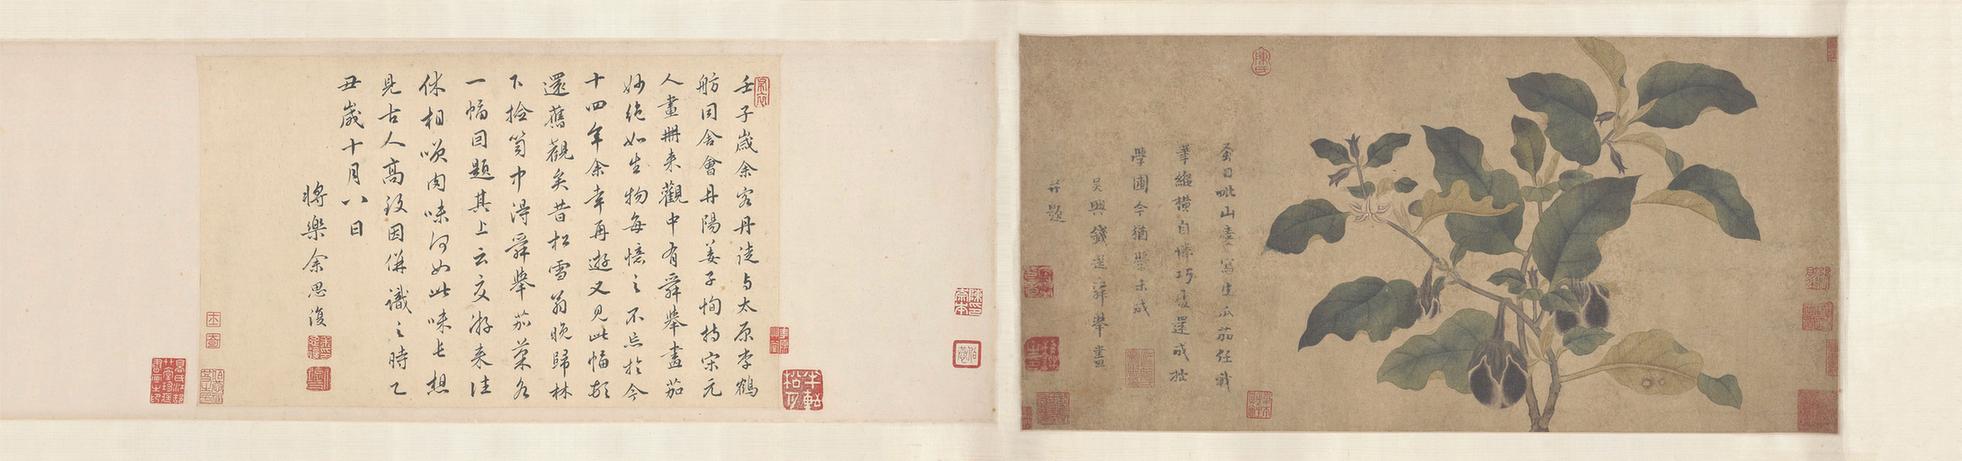 蚤日毗山愛寫生瓜茄任我
筆縱橫自憐巧處還成拙
學圃今猶學未成
吳興錢選舜舉畫
并題
壬子歲余客丹徒与太原李鶴
舫同舍會丹陽姜子恂持宋元
人畫冊来觀中有舜舉畫茄
妙絕如生物每憶之不忘於今
十四年余幸再遊又見此幅頓
還舊觀矣昔松雪翁晚歸林
下撿笥中得舜舉茄菜各
一幅因題其上云交游来往
休相唤肉味何如此味長想
見古人高致因併識之時乙
丑歲十月八日
將樂余思復